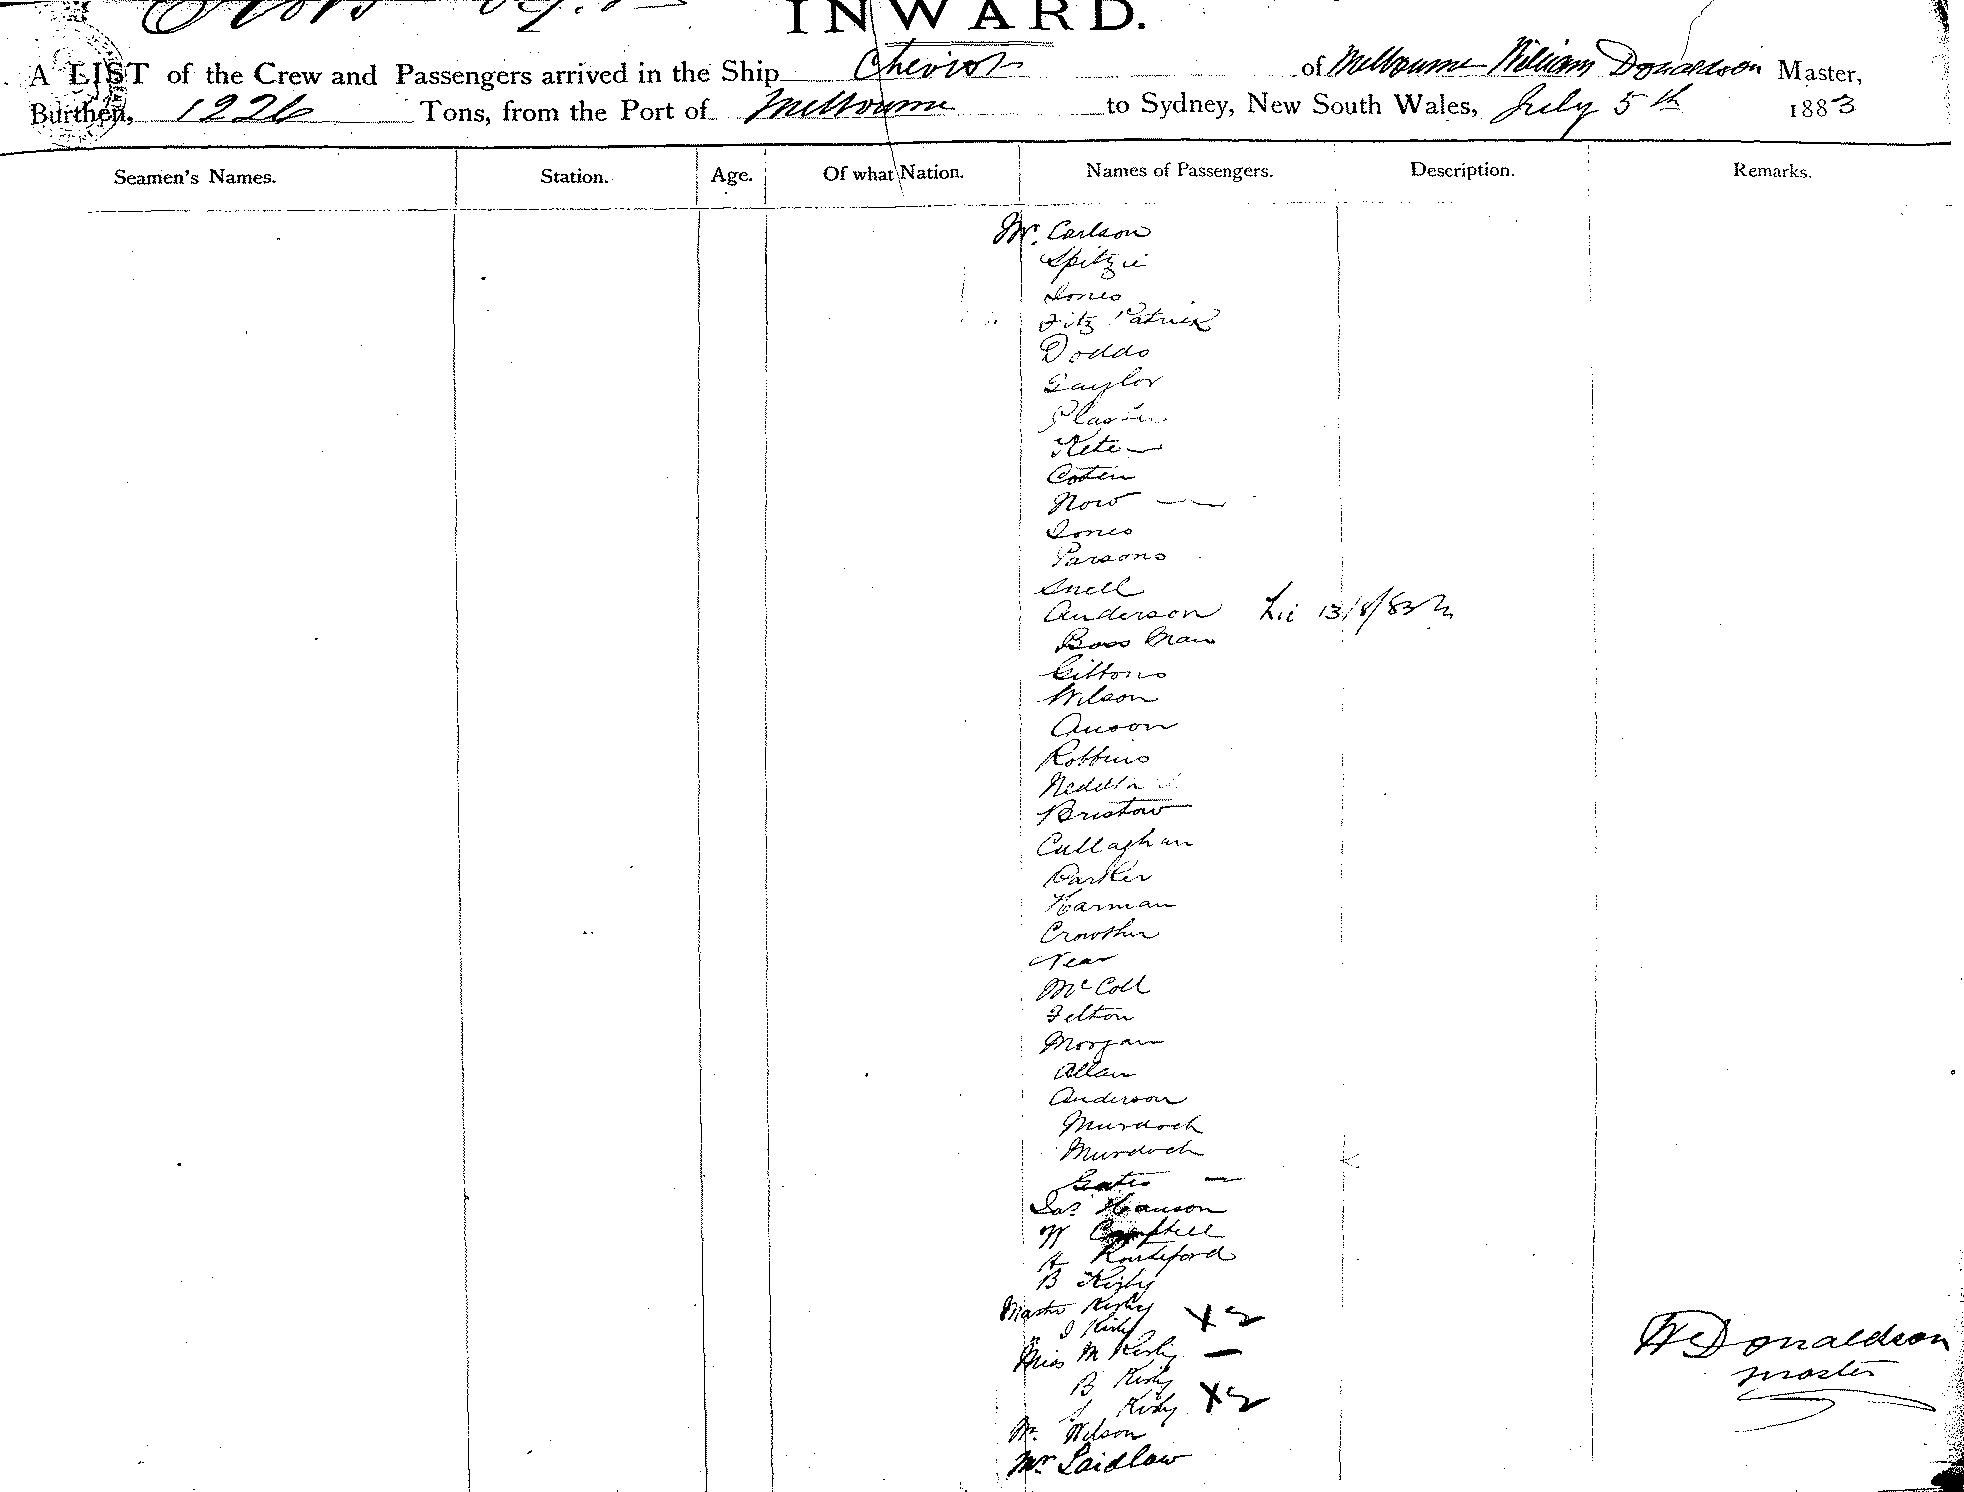 INWARD.
A LIST of the Crew and Passengers arrived in the Ship Cheviot of Melbourne William Donaldson Master,
Burthen, 1226 Tons, from the Port of Melbourne to Sydney, New South Wales, July 5th 1883
Seamen's Names. Station. Age. Of what Nation. Names of Passengers. Description. Remarks.
Mr. Carlson
Spitzii
Jones
Fitz Patrick
Dodds
Gaylor
Kete
Coten
Now
Jones
Parsons
Snell
Anderson Lic 13/8/83
Boss Man
Gibbons
Wilson
Anson
Robbins
Bristow
Cullaghan
Parker
Harman
Crowther
Near
McColl
Felton
Morgan
Allan
Anderson
Murdoch
Murdoch
Gates
Jas Hanson
W Campbell
A Routeford
B Kirby
Master Kirby X 2
J Kirby
Miss M Kirby
B Kirby
Kirby X 2
Mr. Wilson
Mr Laidlaw
W Donaldson
master